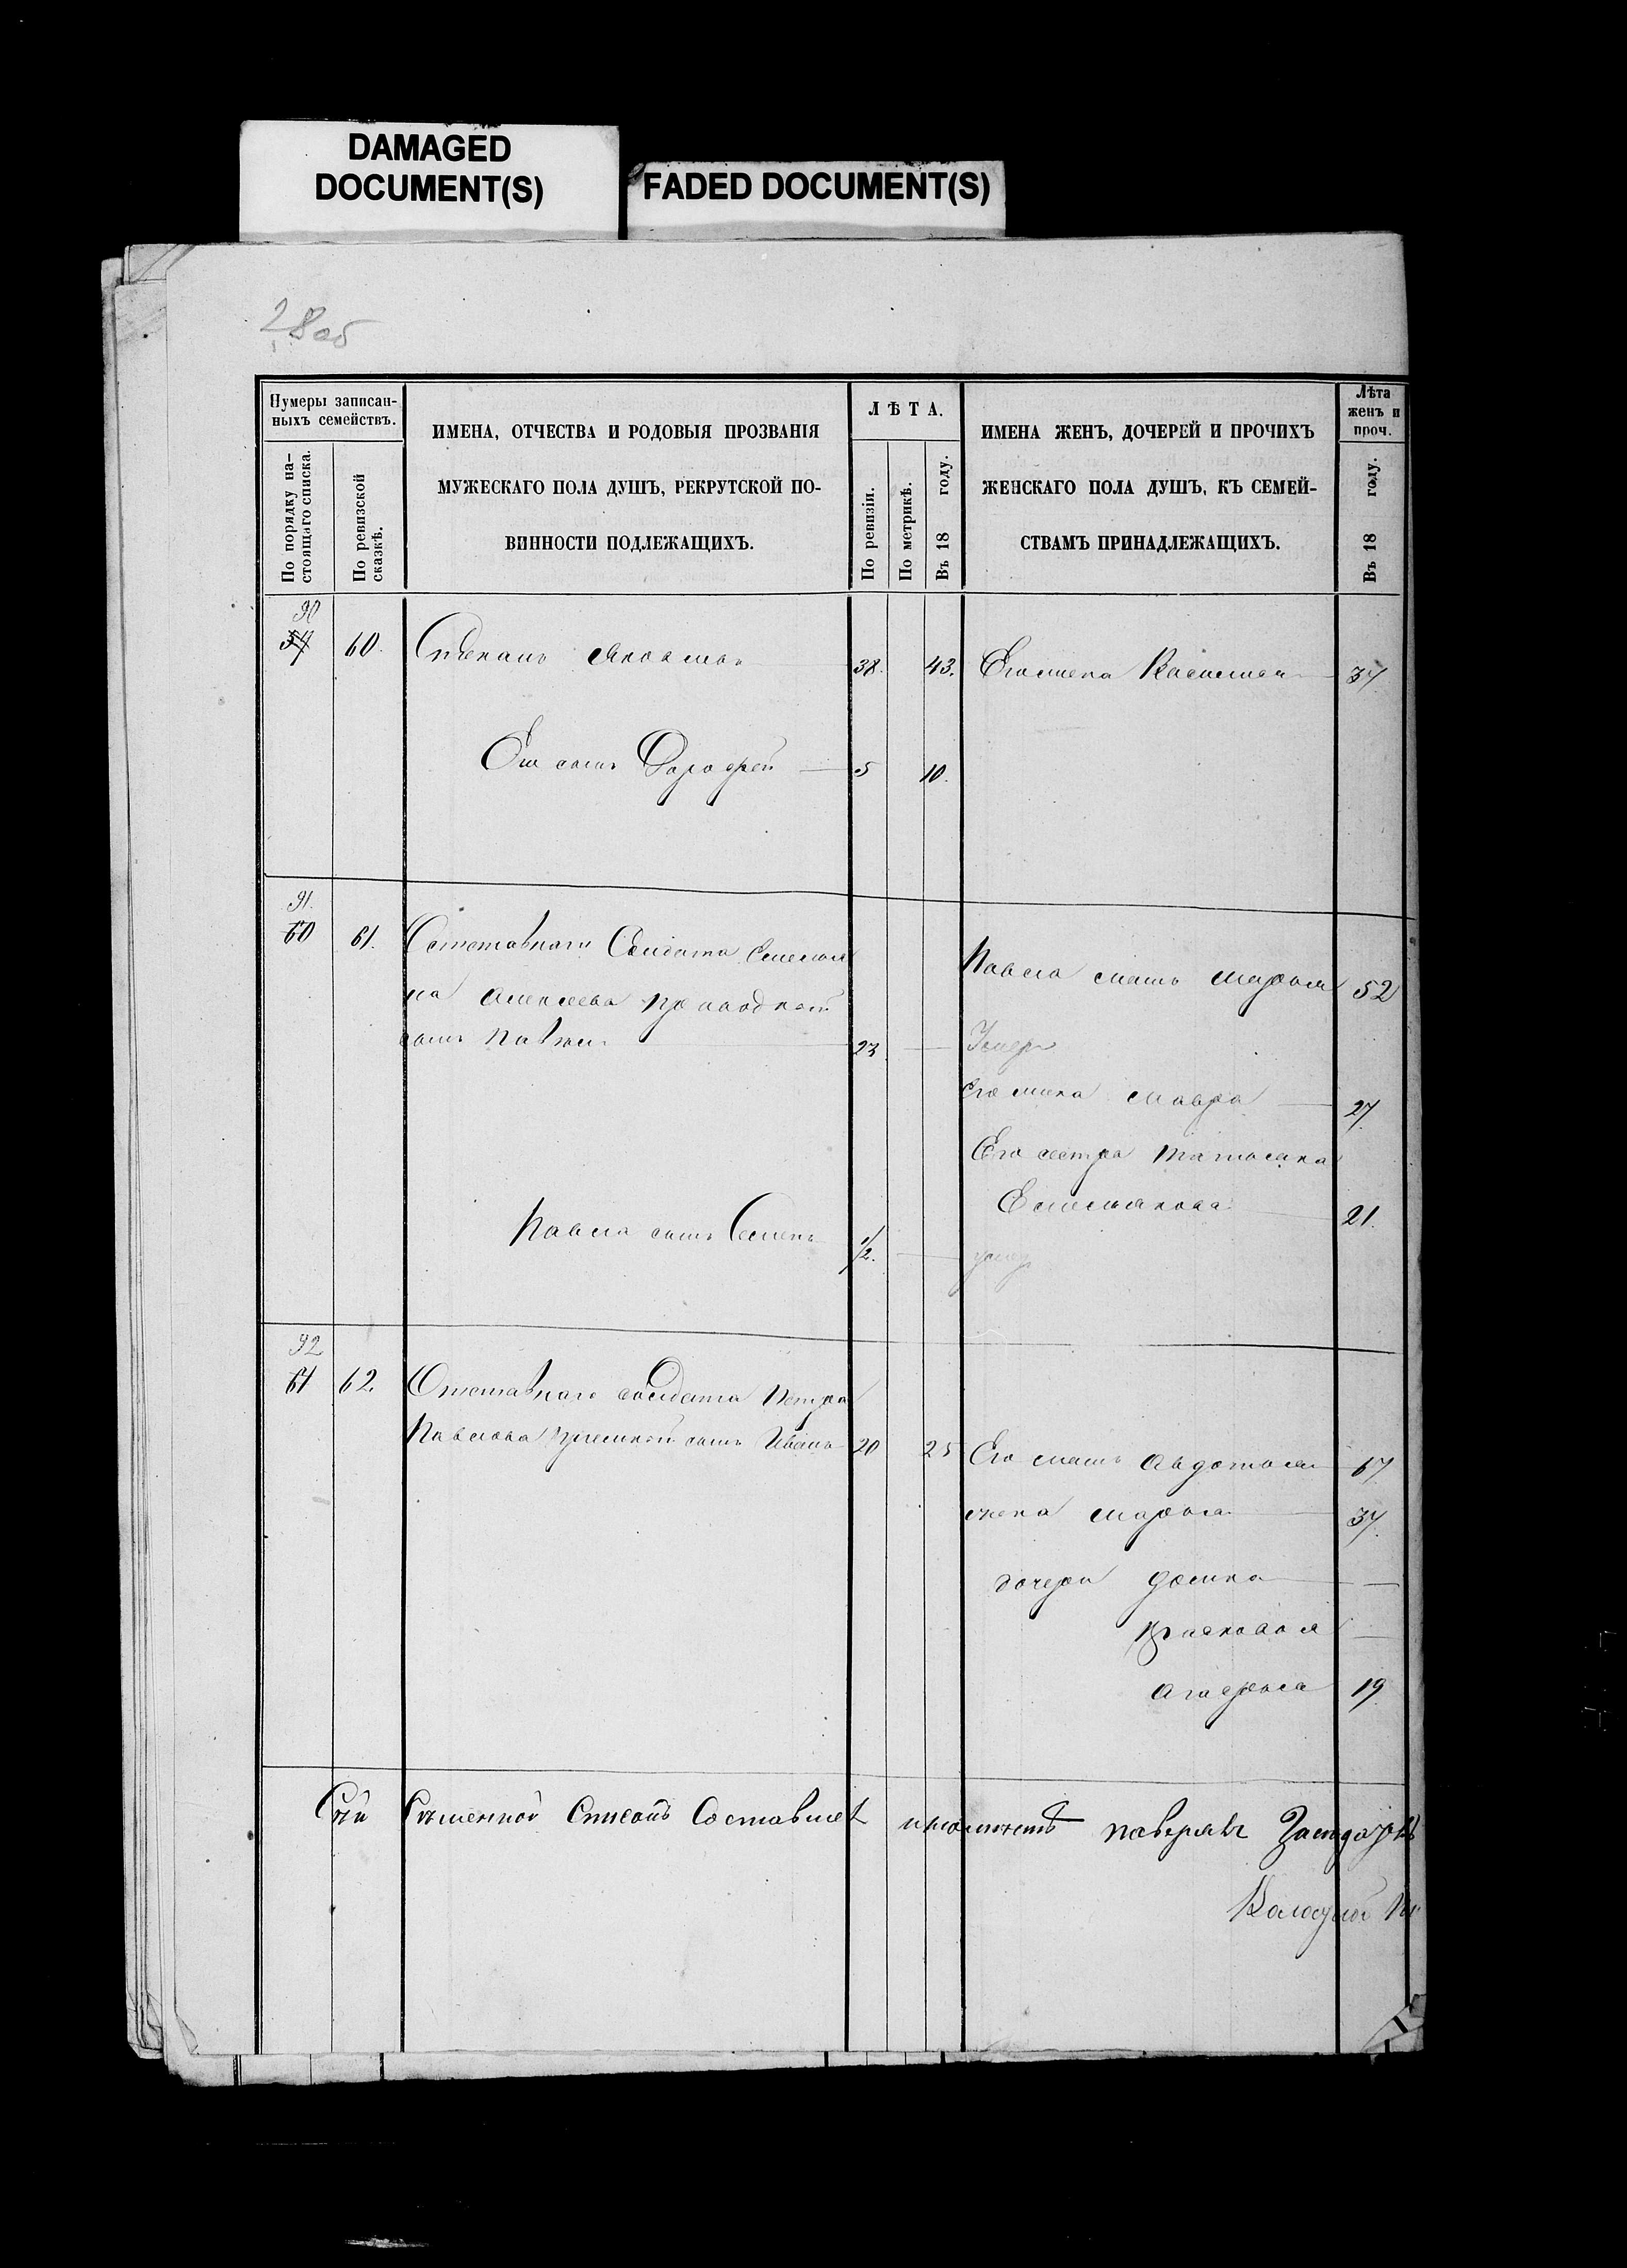 DAMAGED
DOCUMENT(S)
FADED DOCUMENT(S)
28 об
Нумеры записан-
ныхъ семействъ.
По порядку на-
стоящаго списка.
По ревизской
сказкѣ.
ИМЕНА, ОТЧЕСТВА И РОДОВЫЯ ПРОЗВАНІЯ
МУЖЕСКАГО ПОЛА ДУШЪ, РЕКРУТСКОЙ ПО-
ВИННОСТИ ПОДЛЕЖАЩИХЪ.
ЛѢТА.
По ревизіи.
По метрикѣ.
Въ 18 году.
ИМЕНА ЖЕНЪ, ДОЧЕРЕЙ И ПРОЧИХЪ
ЖЕНСКАГО ПОЛА ДУШЪ, КЪ СЕМЕЙ-
СТВАМЪ ПРИНАДЛЕЖАЩИХЪ.
Лѣта
женъ и
проч.
Въ 18 году.
90
60. Степанъ 38. 43. Его жена 37
Его сынъ Дорофей 5 10.
91.
60 61. Отставнаго Солдата Емелья
на Алексеева
сынъ Павелъ 23
Павла мать Марья 52
Умеръ
Его жена Мавра 27
Его сестра Татьяна
Емельянова 21.
Павла сынъ Семенъ 1/2. умер
92
61 62. Отставнаго солдата Петра
Павлова приемной сынъ Иванъ 20 25 Его мать Авдотья 67
жена Марья 37
дочери Домна
Прасковья
Агафья 19
Сей Список Составлял поверял